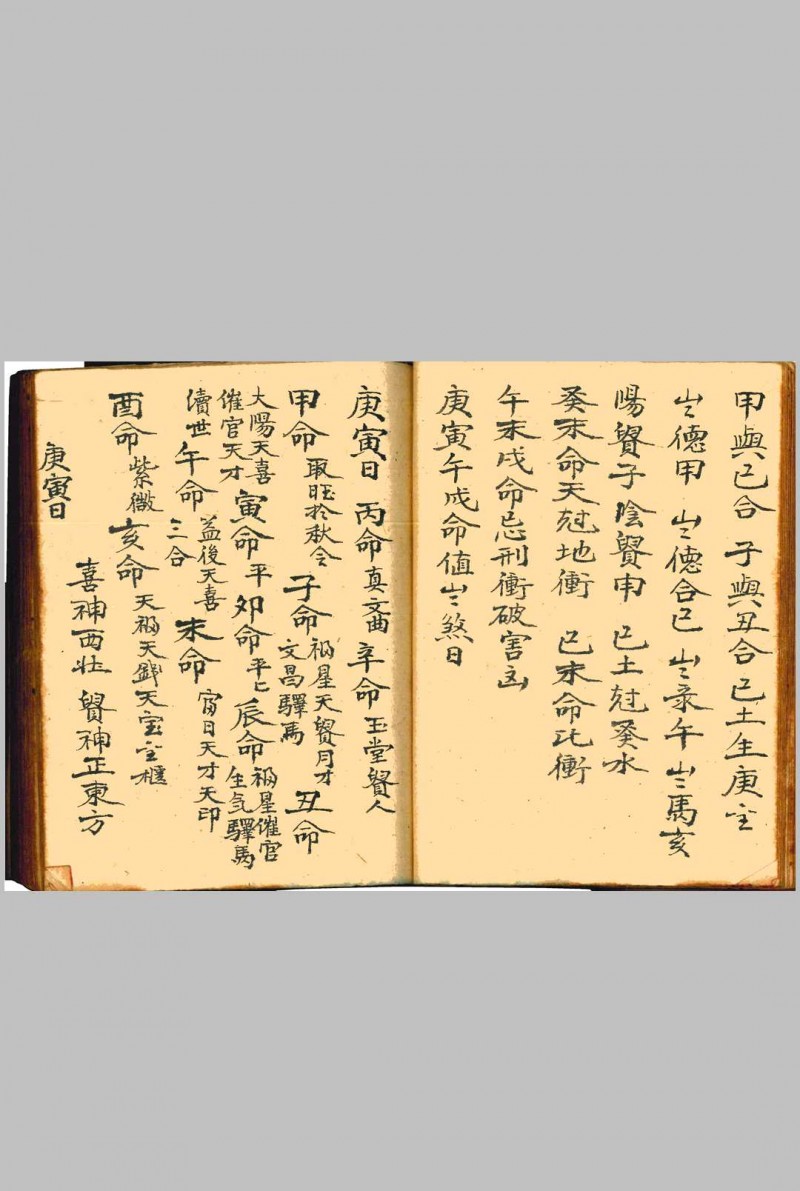 甲與己合 子與丑合 己土生庚金
岁德甲 岁德合己 岁录午 岁馬亥
陽贤子 陰贤申 己土尅癸水
癸未命天尅地衝 己未命比衝
午未戌命忌刑衝破害凶
庚寅午戌命值岁煞日
庚寅日 丙命真文酉 辛命玉堂贤人
甲命取旺於秋令 子命福星天贤月才文昌驛馬 丑命
太陽天喜催官天才 寅命平 卯命平匕 辰命福星催官生气驛馬
續世 午命益後天喜三合 未命 天才天印
酉命紫微 亥命天福天錢天宝金櫃
喜神西北 贤神正東方
庚寅日